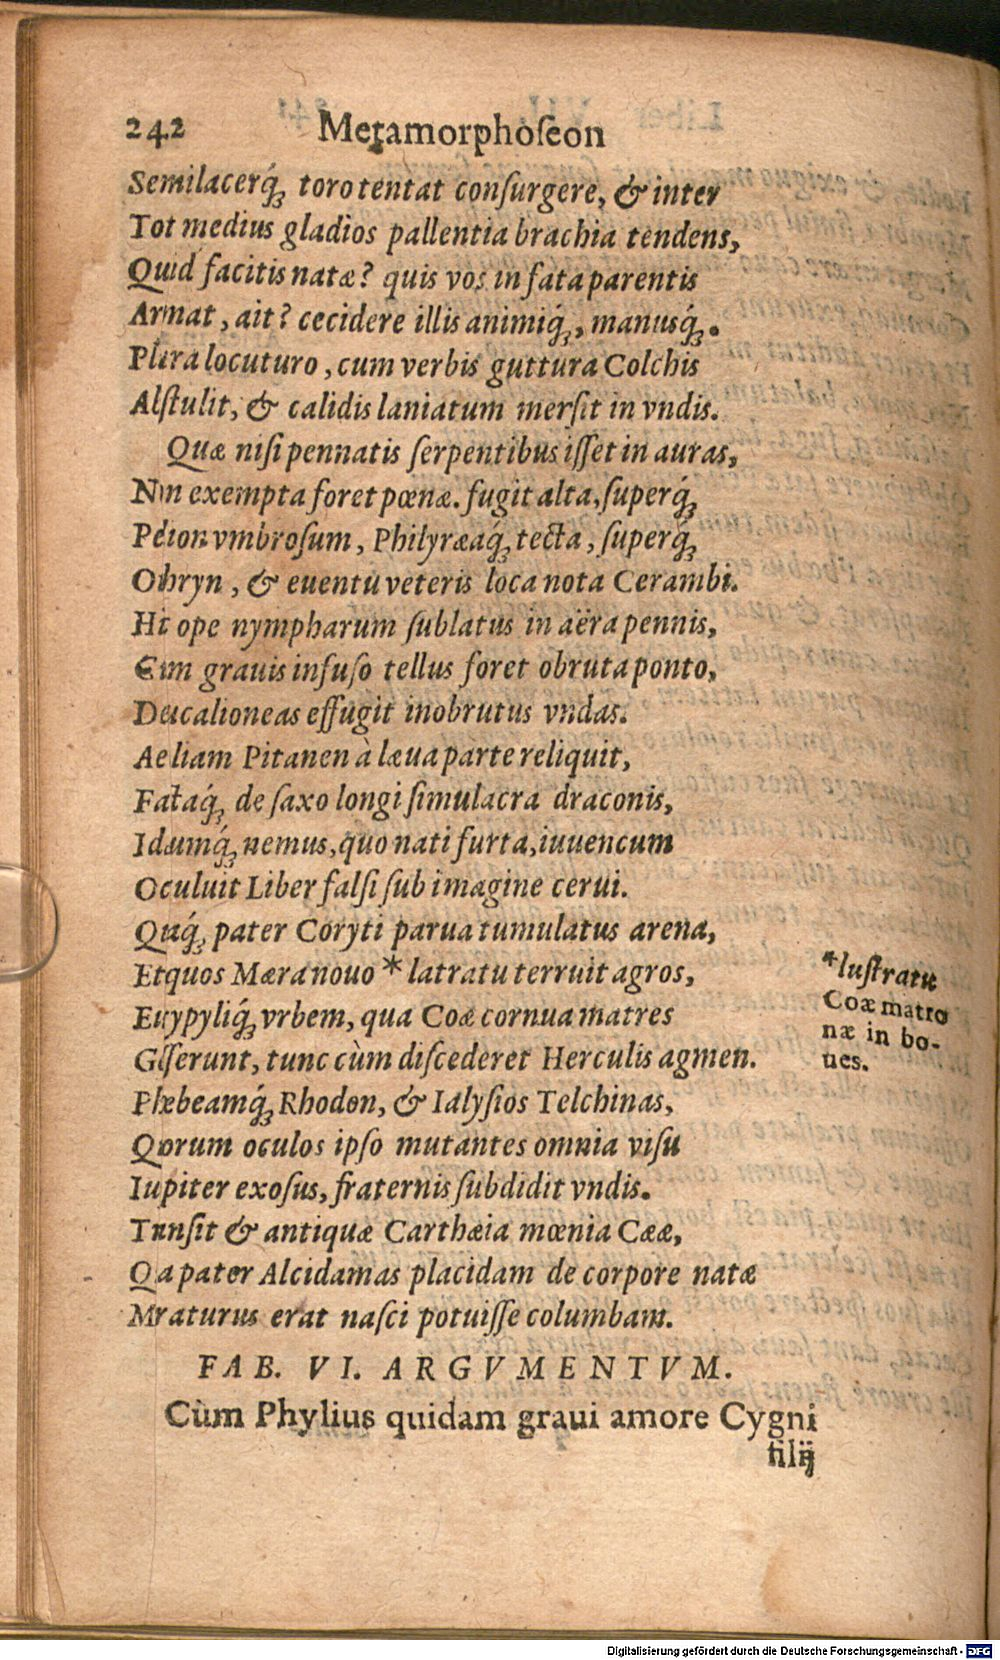 242 Metamorphoſeon
Semilacerq́ꝫ toro tentat conſurgere, & inter
Tot medius gladios pallentia brachia tendens,
Quid facitis natæ? quis vos in fata parentis
Armat, ait? cecidere illis animiq́ꝫ, manusq́ꝫ.
Plura locuturo, cum verbis guttura Colchis
Abſtulit, & calidis laniatum merſit in vndis.
Quæ niſi pennatis ſerpentibus iſſet in auras,
Non exempta foret pœnæ. fugit alta, ſuperq́ꝫ
Pelion vmbroſum, Philyræaq́ꝫ tecta, ſuperq́ꝫ
Othryn, & euentu veteris loca nota Cerambi.
Hic ope nympharum ſublatus in aëra pennis,
Cùm grauis infuſo tellus foret obruta ponto,
Deucalioneas effugit inobrutus vndas.
Aeliam Pitanen à læua parte reliquit,
Fataq́ꝫ de ſaxo longi ſimulacra draconis,
Idæumq́ꝫ nemus, quo nati furta, iuuencum
Occuluit Liber falſi ſub imagine cerui.
Quáq́ꝫ pater Coryti parua tumulatus arena,
Et quos Mæra nouo * latratu terruit agros,
Eurypyliq́ꝫ vrbem, qua Coæ cornua matres
Geſſerunt, tunc cùm diſcederet Herculis agmen.
Phœbeamq́ꝫ Rhodon, & Ialyſios Telchinas,
Quorum oculos ipſo mutantes omnia viſu
Iupiter exoſus, fraternis ſubdidit vndis.
Tranſit & antiquæ Carthæia mœnia Cææ,
Qua pater Alcidamas placidam de corpore natæ
Miraturus erat naſci potuiſſe columbam.
*luſtratu
Coæ matro
næ in bo-
ues.
FAB. VI. ARGVMENTVM.
Cùm Phylius quidam graui amore Cygni
filij
Digitalisierung gefördert durch die Deutsche Forschungsgemeinschaft - DFG